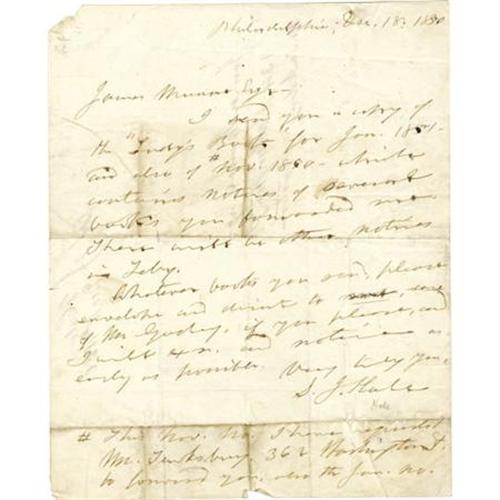 Philadelphia, Dec. 18. 1850
James Munroe Esq
I send you a copy of
the "Lady's Book" for Jan. 1851-
and also of # Nov. 1850- which
contains notices of several
books you forwarded me.
There will be other notices
in Feby.
Whatever books you send, please
envelope and direct to care
of Mr Godey, if you please, and
I will ex. and notice as
early as possible. Very truly yours
S J Hale
Hale
# The Nov. No. I have requested
Mr. Tewksbury 362 Washington st.
to forward you, also the Jan. No.